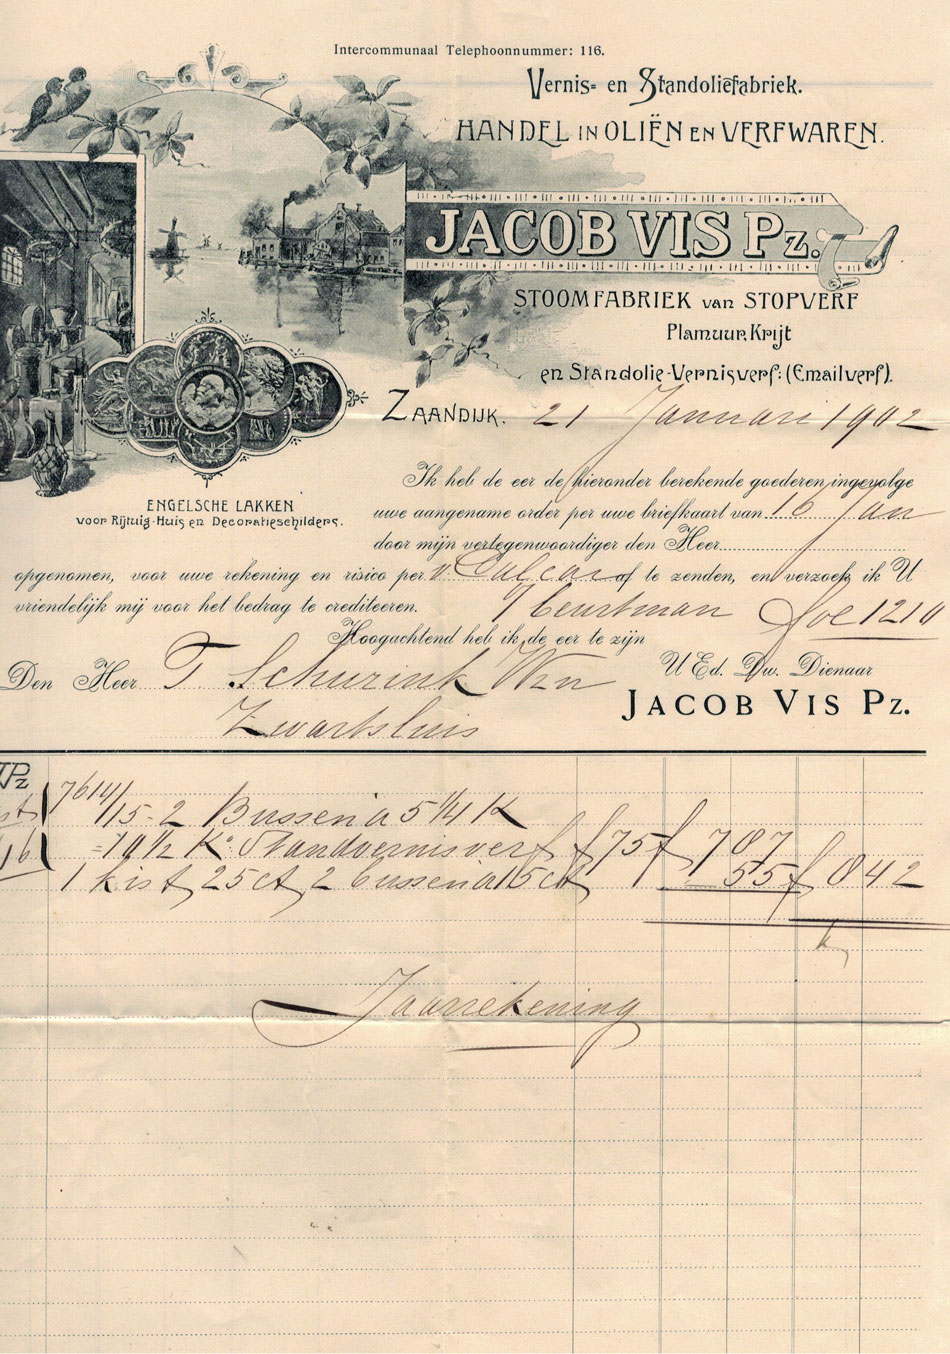 Intercommunaal Telephoonnummer: 116.
Vernis- en Standoliefabriek.
HANDEL IN OLIËN EN VERFWAREN.
JACOB VIS Pz.
STOOMFABRIEK van STOPVERF
Plamuur, Krijt
en Standolie-Vernisverf: (Emailverf).
ZAANDIJK. 21 Januari 1902
ENGELSCHE LAKKEN
voor Rijtuig-Huis en Decoratieschilders.
Ik heb de eer de hieronder berekende goederen, ingevolge
uwe aangename order per uwe briefkaart van 16 Jan
door mijn vertegenwoordiger den Heer
opgenomen, voor uwe rekening en risico per v Calcar af te zenden, en verzoek ik U
vriendelijk mij voor het bedrag te crediteeren. / Beurtman foe 1210
Hoogachtend heb ik de eer te zijn
U Ed. Dw. Dienaar
JACOB VIS Pz.
Den Heer T. Schurink Wzn
Zwartsluis
JPz
7614/15 - 2 Bussen à 5 1/4 K
16 = 10 1/2 Ko Standvernisverf f 75 f 787
1 kist 25 ct, 2 bussen à 15 ct 55 f 8 42
Jaarrekening